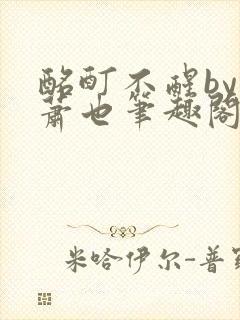 酩酊不醒by
萧也笔趣阁
米哈伊尔-普